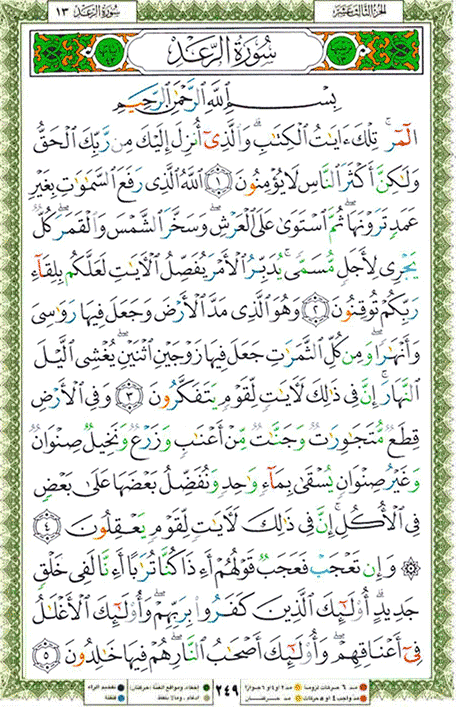 الجزء الثالث عشر
سورة الرعد ١٣
سُورَةُ الرَّعْدِ
بِسْمِ اللَّهِ الرَّحْمَٰنِ الرَّحِيمِ
الٓمٓرۚ تِلْكَ ءَايَٰتُ الْكِتَٰبِۗ وَالَّذِىٓ أُنزِلَ إِلَيْكَ مِن رَّبِّكَ الْحَقُّ
وَلَٰكِنَّ أَكْثَرَ النَّاسِ لَا يُؤْمِنُونَ ١ اللَّهُ الَّذِى رَفَعَ السَّمَٰوَٰتِ بِغَيْرِ
عَمَدٍ تَرَوْنَهَاۖ ثُمَّ اسْتَوَىٰ عَلَى الْعَرْشِۖ وَسَخَّرَ الشَّمْسَ وَالْقَمَرَۖ كُلٌّ
يَجْرِى لِأَجَلٍ مُّسَمًّىۚ يُدَبِّرُ الْأَمْرَ يُفَصِّلُ الْءَايَٰتِ لَعَلَّكُم بِلِقَآءِ
رَبِّكُمْ تُوقِنُونَ ٢ وَهُوَ الَّذِى مَدَّ الْأَرْضَ وَجَعَلَ فِيهَا رَوَٰسِىَ
وَأَنْهَٰرًاۖ وَمِن كُلِّ الثَّمَرَٰتِ جَعَلَ فِيهَا زَوْجَيْنِ اثْنَيْنِۖ يُغْشِى الَّيْلَ
النَّهَارَۚ إِنَّ فِى ذَٰلِكَ لَءَايَٰتٍ لِّقَوْمٍ يَتَفَكَّرُونَ ٣ وَفِى الْأَرْضِ
قِطَعٌ مُّتَجَٰوِرَٰتٌ وَجَنَّٰتٌ مِّنْ أَعْنَٰبٍ وَزَرْعٌ وَنَخِيلٌ صِنْوَانٌ
وَغَيْرُ صِنْوَانٍ يُسْقَىٰ بِمَآءٍ وَٰحِدٍ وَنُفَضِّلُ بَعْضَهَا عَلَىٰ بَعْضٍ
فِى الْأُكُلِۚ إِنَّ فِى ذَٰلِكَ لَءَايَٰتٍ لِّقَوْمٍ يَعْقِلُونَ ٤
۞ وَإِن تَعْجَبْ فَعَجَبٌ قَوْلُهُمْ أَءِذَا كُنَّا تُرَٰبًا أَءِنَّا لَفِى خَلْقٍ
جَدِيدٍۗ أُو۟لَٰٓئِكَ الَّذِينَ كَفَرُوا۟ بِرَبِّهِمْۖ وَأُو۟لَٰٓئِكَ الْأَغْلَٰلُ
فِىٓ أَعْنَاقِهِمْۖ وَأُو۟لَٰٓئِكَ أَصْحَٰبُ النَّارِۖ هُمْ فِيهَا خَٰلِدُونَ ٥
مد ٦ حركات لزوماً مد ٢ أو ٤ أو ٦ جوازاً
مد حركتان
٢٤٩
إخفاء، ومواقع الغنة (حركتان)
ادغام، وما لا يلفظ
تفخيم الراء
قلقلة